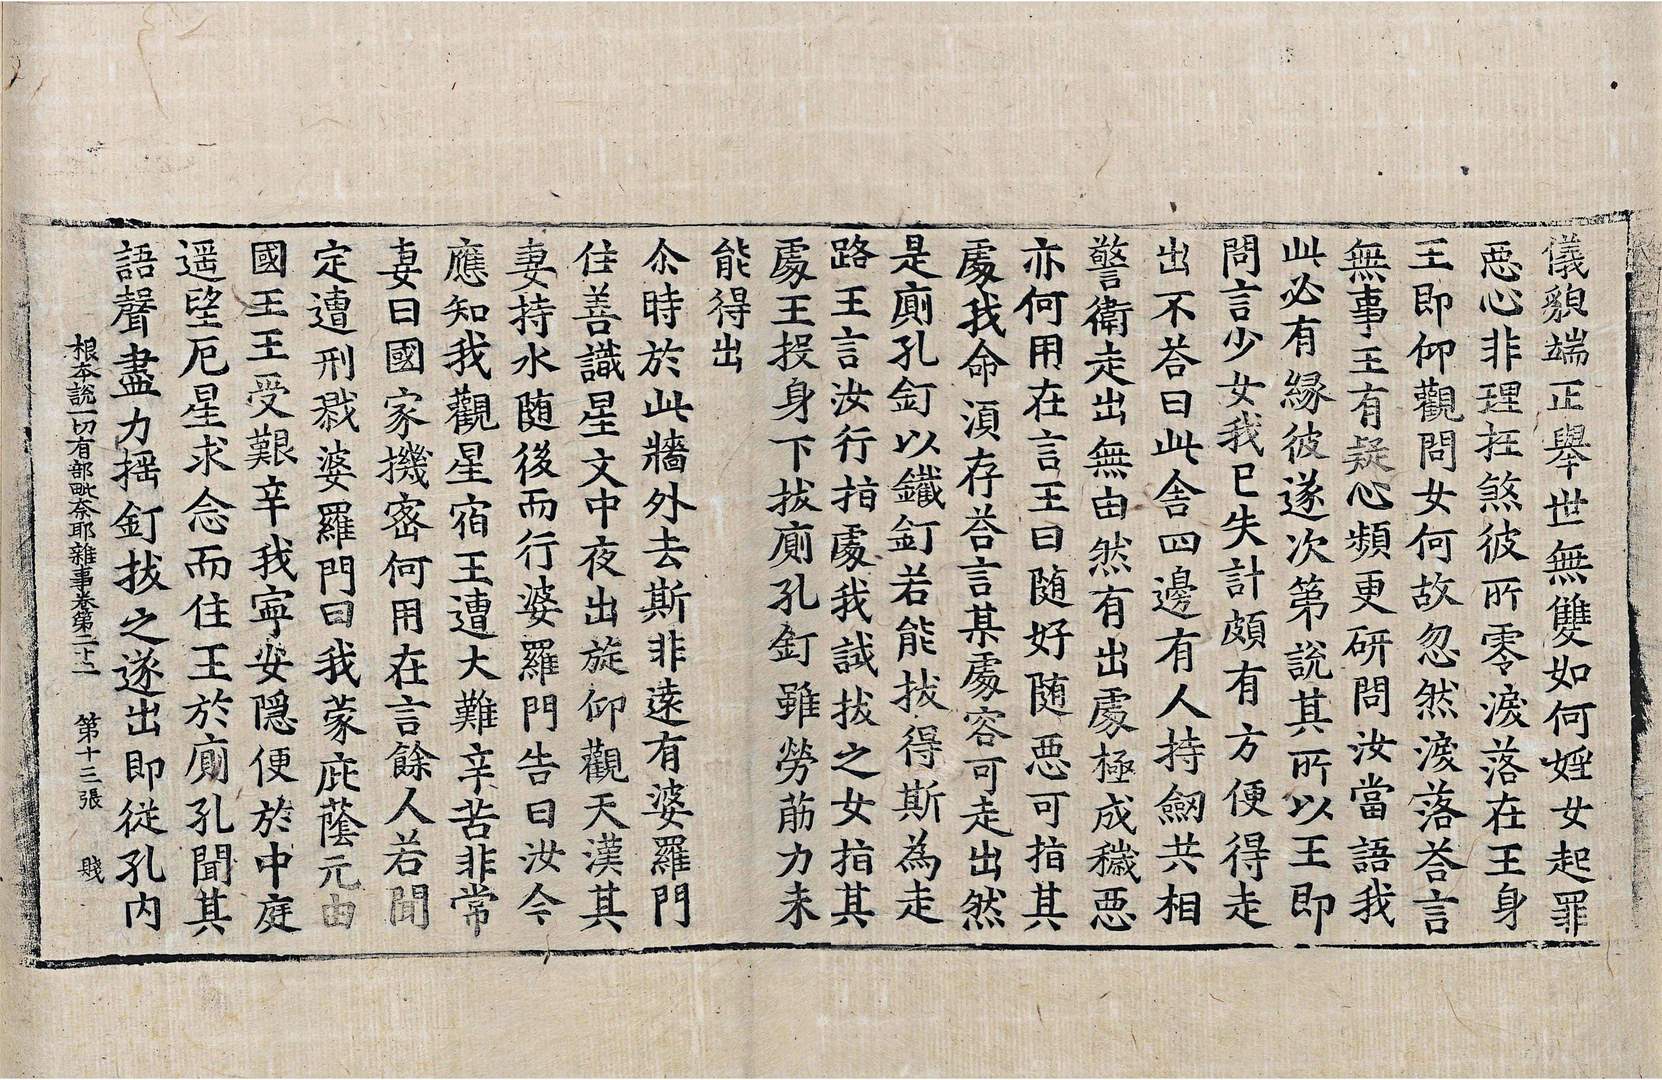 儀貌端正舉世無雙如何婬女起罪
惡心非理抂煞彼所零淚落在王身
王即仰觀問女何故忽然淚落荅言
無事王有疑心頻更研問汝當語我
此必有緣彼遂次第說其所以王即
問言少女我已失計頗有方便得走
出不荅曰此舍四邊有人持劒共相
警衛走出無由然有出處極成穢惡
亦何用在言王曰随好随惡可指其
處我命湏存荅言某處容可走出然
是廁孔釘以鐵釘若能拔得斯為走
路王言汝行指處我試拔之女指其
處王投身下拔廁孔釘雖勞筋力未
能得出
尒時於此牆外去斯非遠有婆羅門
住善識星文中夜出旋仰觀天漢其
妻持水随後而行婆羅門告曰汝今
應知我觀星宿王遭大難辛苦非常
妻曰國家機密何用在言餘人若聞
定遭刑戮婆羅門曰我蒙庇蔭元由
國王王受艱辛我寧安隠便於中庭
遥望厄星求念而住王於廁孔聞其
語聲盡力揺釘拔之遂出即従孔内
根本說一切有部毗奈耶雜事卷第二十二 第十三張 賤